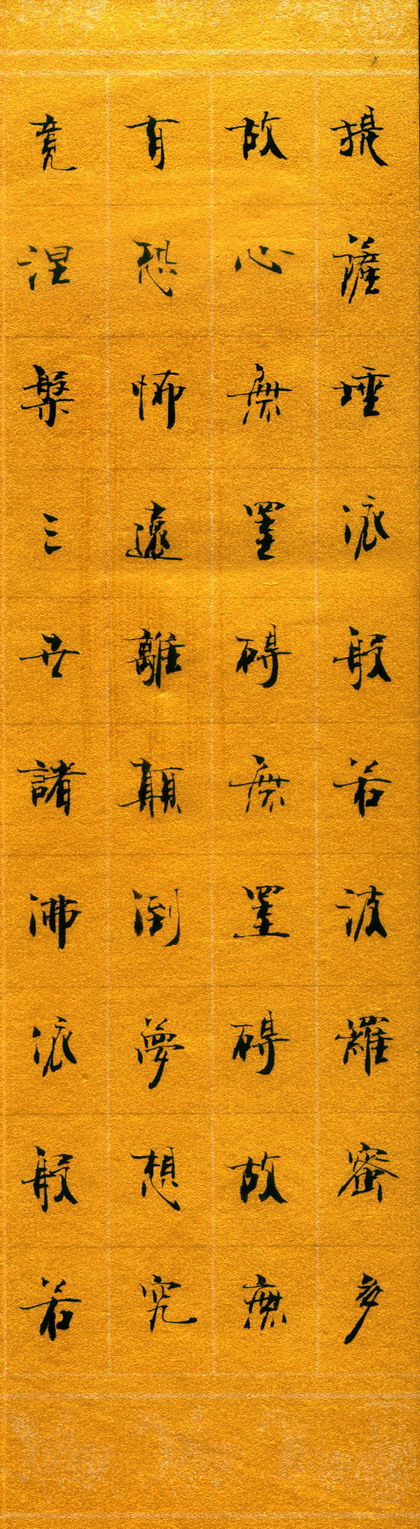 提薩埵依般若波羅蜜多
故心無罣碍無罣碍故無
有恐怖遠離顛倒夢想究
竟涅槃三世諸佛依般若